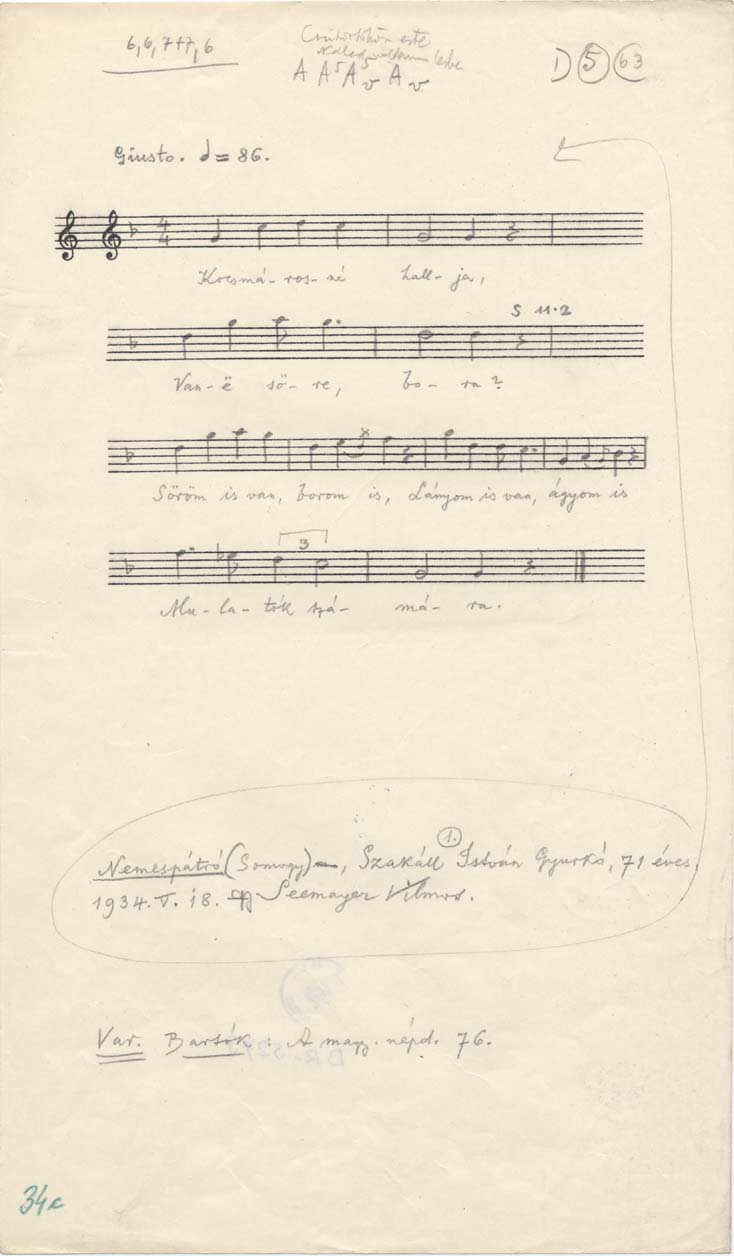 6, 6, 7+7, 6
Csütörtökön este
Nálad voltam lesbe
A A⁵ A⁵ᵥ Aᵥ
1) 5 63
Giusto. = 86.
4 4
Kocsmá- ros- né hall- ja,
5 11.2
Van- ë sö- re, bo- ra?
Söröm is van, borom is, Lányom is van, ágyom is
3
Mu- la- tók szá- má- ra.
1.
Nemespátró (Somogy), Szakáll István Gyurkó, 71 éves.
1934. V. 18. Seemayer Vilmos.
Var. Bartók: A magy. népd. 76.
34c